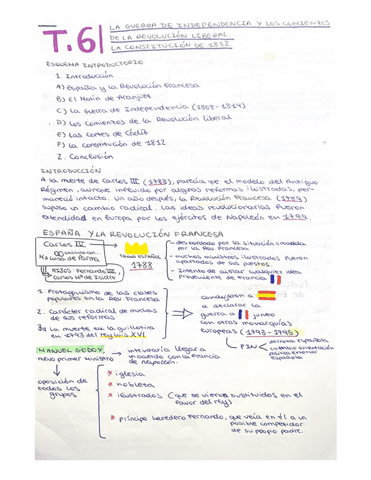 T.6|
LA GUERRA DE INDEPENDENCIA Y LOS COMIENZOS
DE LA REVOLUCIÓN LIBERAL
LA CONSTITUCIÓN DE 1812
ESQUEMA INTRODUCTORIO
1. Introducción
A) España y la Revolución Francesa
B) El Motín de Aranjuez
C) La Guerra de Independencia (1808-1814)
D) Los comienzos de la Revolución Liberal
E) Las Cortes de Cádiz
F) La constitución de 1812
2. Conclusión
INTRODUCCIÓN
A la muerte de Carlos III (1788), parecía que el modelo del Antiguo
Régimen, aunque influido por algunas reformas ilustradas, per-
manecía intacto. Un año después, la Revolución Francesa (1789)
supuso un cambio radical. Las ideas revolucionarias fueron
extendidas en Europa por los ejércitos de Napoleón en 1799.
ESPAÑA Y LA REVOLUCIÓN FRANCESA
Carlos IV
casado con
Mª Luisa de Parma
HIJOS: Fernando VII,
Carlos Mª de Isidro
TRONO ESPAÑOL
1788
- desbordado por la situación creada
por la Rev Francesa
- muchos ministros ilustrados fueron
apartados de sus puestos
- Intento de aislar cualquier idea
proveniente de Francia
1. Protagonismo de las clases
populares en la Rev Francesa
2. Carácter radical de muchas
de sus reformas
3. La muerte en la guillotina
en 1793 del rey Luis XVI
condujeron a
a declarar la
guerra a junto
con otras monarquías
europeas (1793-1795)
FIN
derrota española
cambio orientación
política exterior
española
MANUEL GODOY
nuevo primer ministro
procuraría llegar a
un acuerdo con la Francia
de Napoleón.
oposición de
todos los
grupos
* iglesia
* nobleza
* ilustrados (que se vieron sustituidos en el
favor del rey)
* príncipe heredero Fernando, que veía en él a un
posible competidor
de su propio padre.